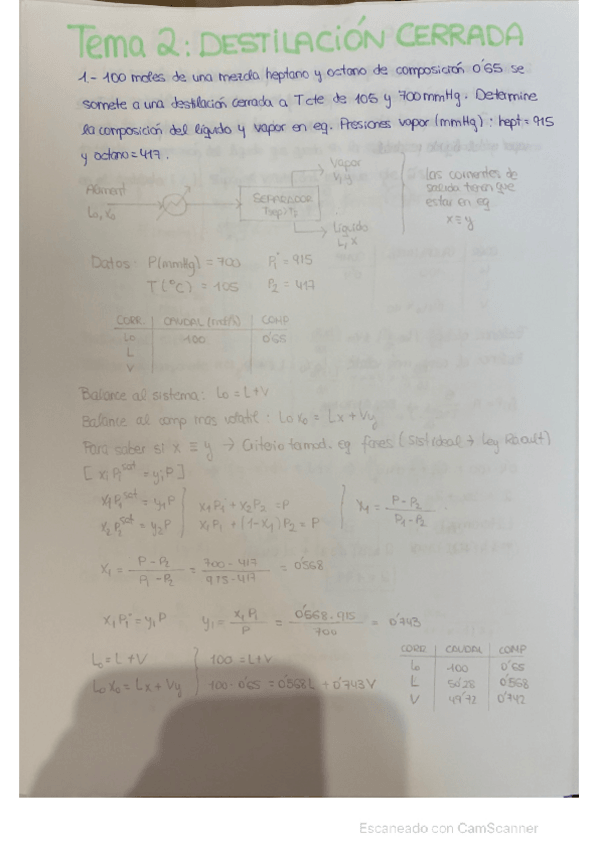 Tema 2: DESTILACIÓN CERRADA
1.- 100 moles de una mezcla heptano y octano de composición 0'65 se
somete a una destilación cerrada a Tcte de 105 y 700mmHg. Determine
la composición del líquido y vapor en eq. Presiones vapor (mmHg): hept=915
y octano=417.
Vapor
V, y
Aliment
L₀, x₀
SEPARADOR
Líquido
L, x
las corrientes de
salida tienen que
estar en eq
x ≡ y
Datos: P(mmHg) = 700 P₁° = 915
T(°C) = 105 P₂ = 417
CORR. CAUDAL (mol/h) COMP
L₀ 100 0'65
L
V
Balance al sistema: L₀ = L+V
Balance al comp mas volatil: L₀x₀ = Lx + Vy
Para saber si x ≡ y → Criterio termod. eq fases (Sist ideal + Ley Raoult)
[ xᵢ Pᵢ^sat = yᵢ P ]
x₁P₁^sat = y₁P x₁P₁ + x₂P₂ = P x₁ = (P-P₂)/(P₁-P₂)
x₂P₂^sat = y₂P x₁P₁ + (1-x₁)P₂ = P
x₁ = (P-P₂)/(P₁-P₂) = (700-417)/(915-417) = 0'568
x₁P₁° = y₁P y₁ = (x₁P₁)/P = (0'568·915)/700 = 0'743
L₀ = L+V 100 = L+V
L₀x₀ = Lx + Vy 100·0'65 = 0'568L + 0'743V
CORR CAUDAL COMP
L₀ 100 0'65
L 50'28 0'568
V 49'72 0'742
Escaneado con CamScanner